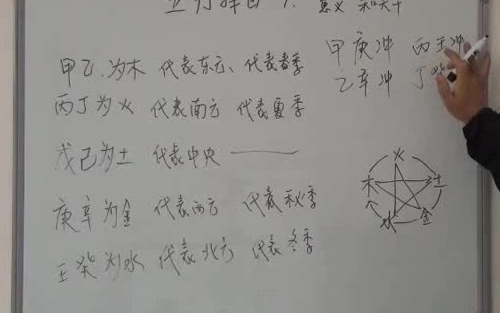 意义
甲庚冲 丙壬冲
乙辛冲 丁
甲乙为木 代表东方、代表春季
丙丁为火 代表南方 代表夏季
戊己为土 代表中央
庚辛为金 代表西方 代表秋季
壬癸为水 代表北方 代表冬季
火
木 土
水 金